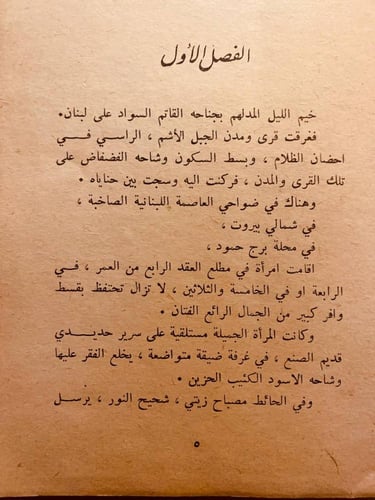 الفصل الأول
خيم الليل المدلهم بجناحه القاتم السواد على لبنان.
فغرقت قرى ومدن الجبل الأشم ، الراسي فـــي
احضان الظلام ، وبسط السكون وشاحه الفضفاض على
تلك القرى والمدن ، فركنت اليه وسجت بين حناياه .
وهناك في ضواحي العاصمة اللبنانية الصاخبة ،
في شمالي بيروت ،
في محلة برج حمود ،
اقامت امرأة في مطلع العقد الرابع من العمر ، فــي
الرابعة او في الخامسة والثلاثين ، لا تزال تحتفظ بقسط
وافر كبير من الجمال الرائع الفتان .
وكانت المرأة الجميلة مستلقية على سرير حديــدي
قديم الصنع ، في غرفة ضيقة متواضعة ، يخلع الفقر عليها
وشاحه الاسود الكئيب الحزين .
وفي الحائط مصباح زيتي ، شحيح النور ، يرســل
٥